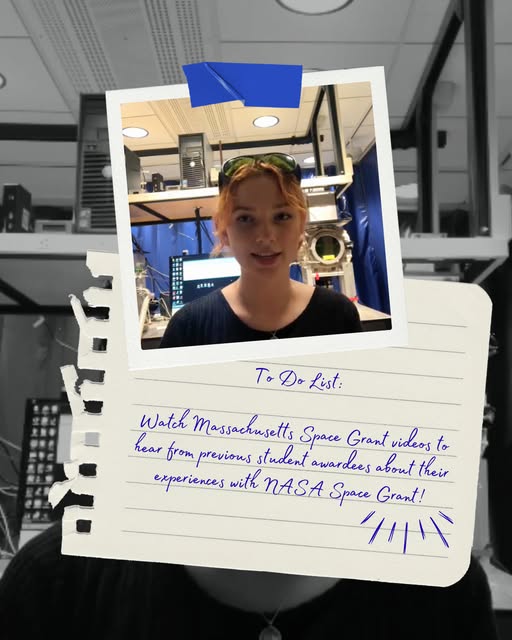 To Do List:
Watch Massachusetts Space Grant videos to
hear from previous student awardees about their
experiences with NASA Space Grant!